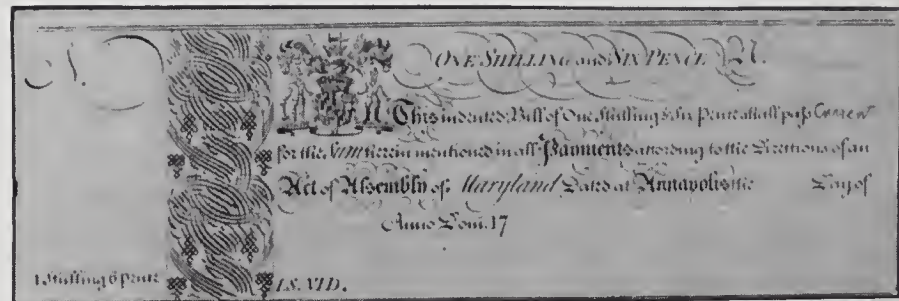 N.
ONE SHILLING and SIX PENCE N.
This indented Bill of One Shilling & Six Pence shall pass Current
for the Sum therein mentioned in all Payments according to the Directions of an
Act of Assembly of Maryland Dated at Annapolis the Day of
Anno Dom. 17
1 Shilling 6 pence
I.S. VID.